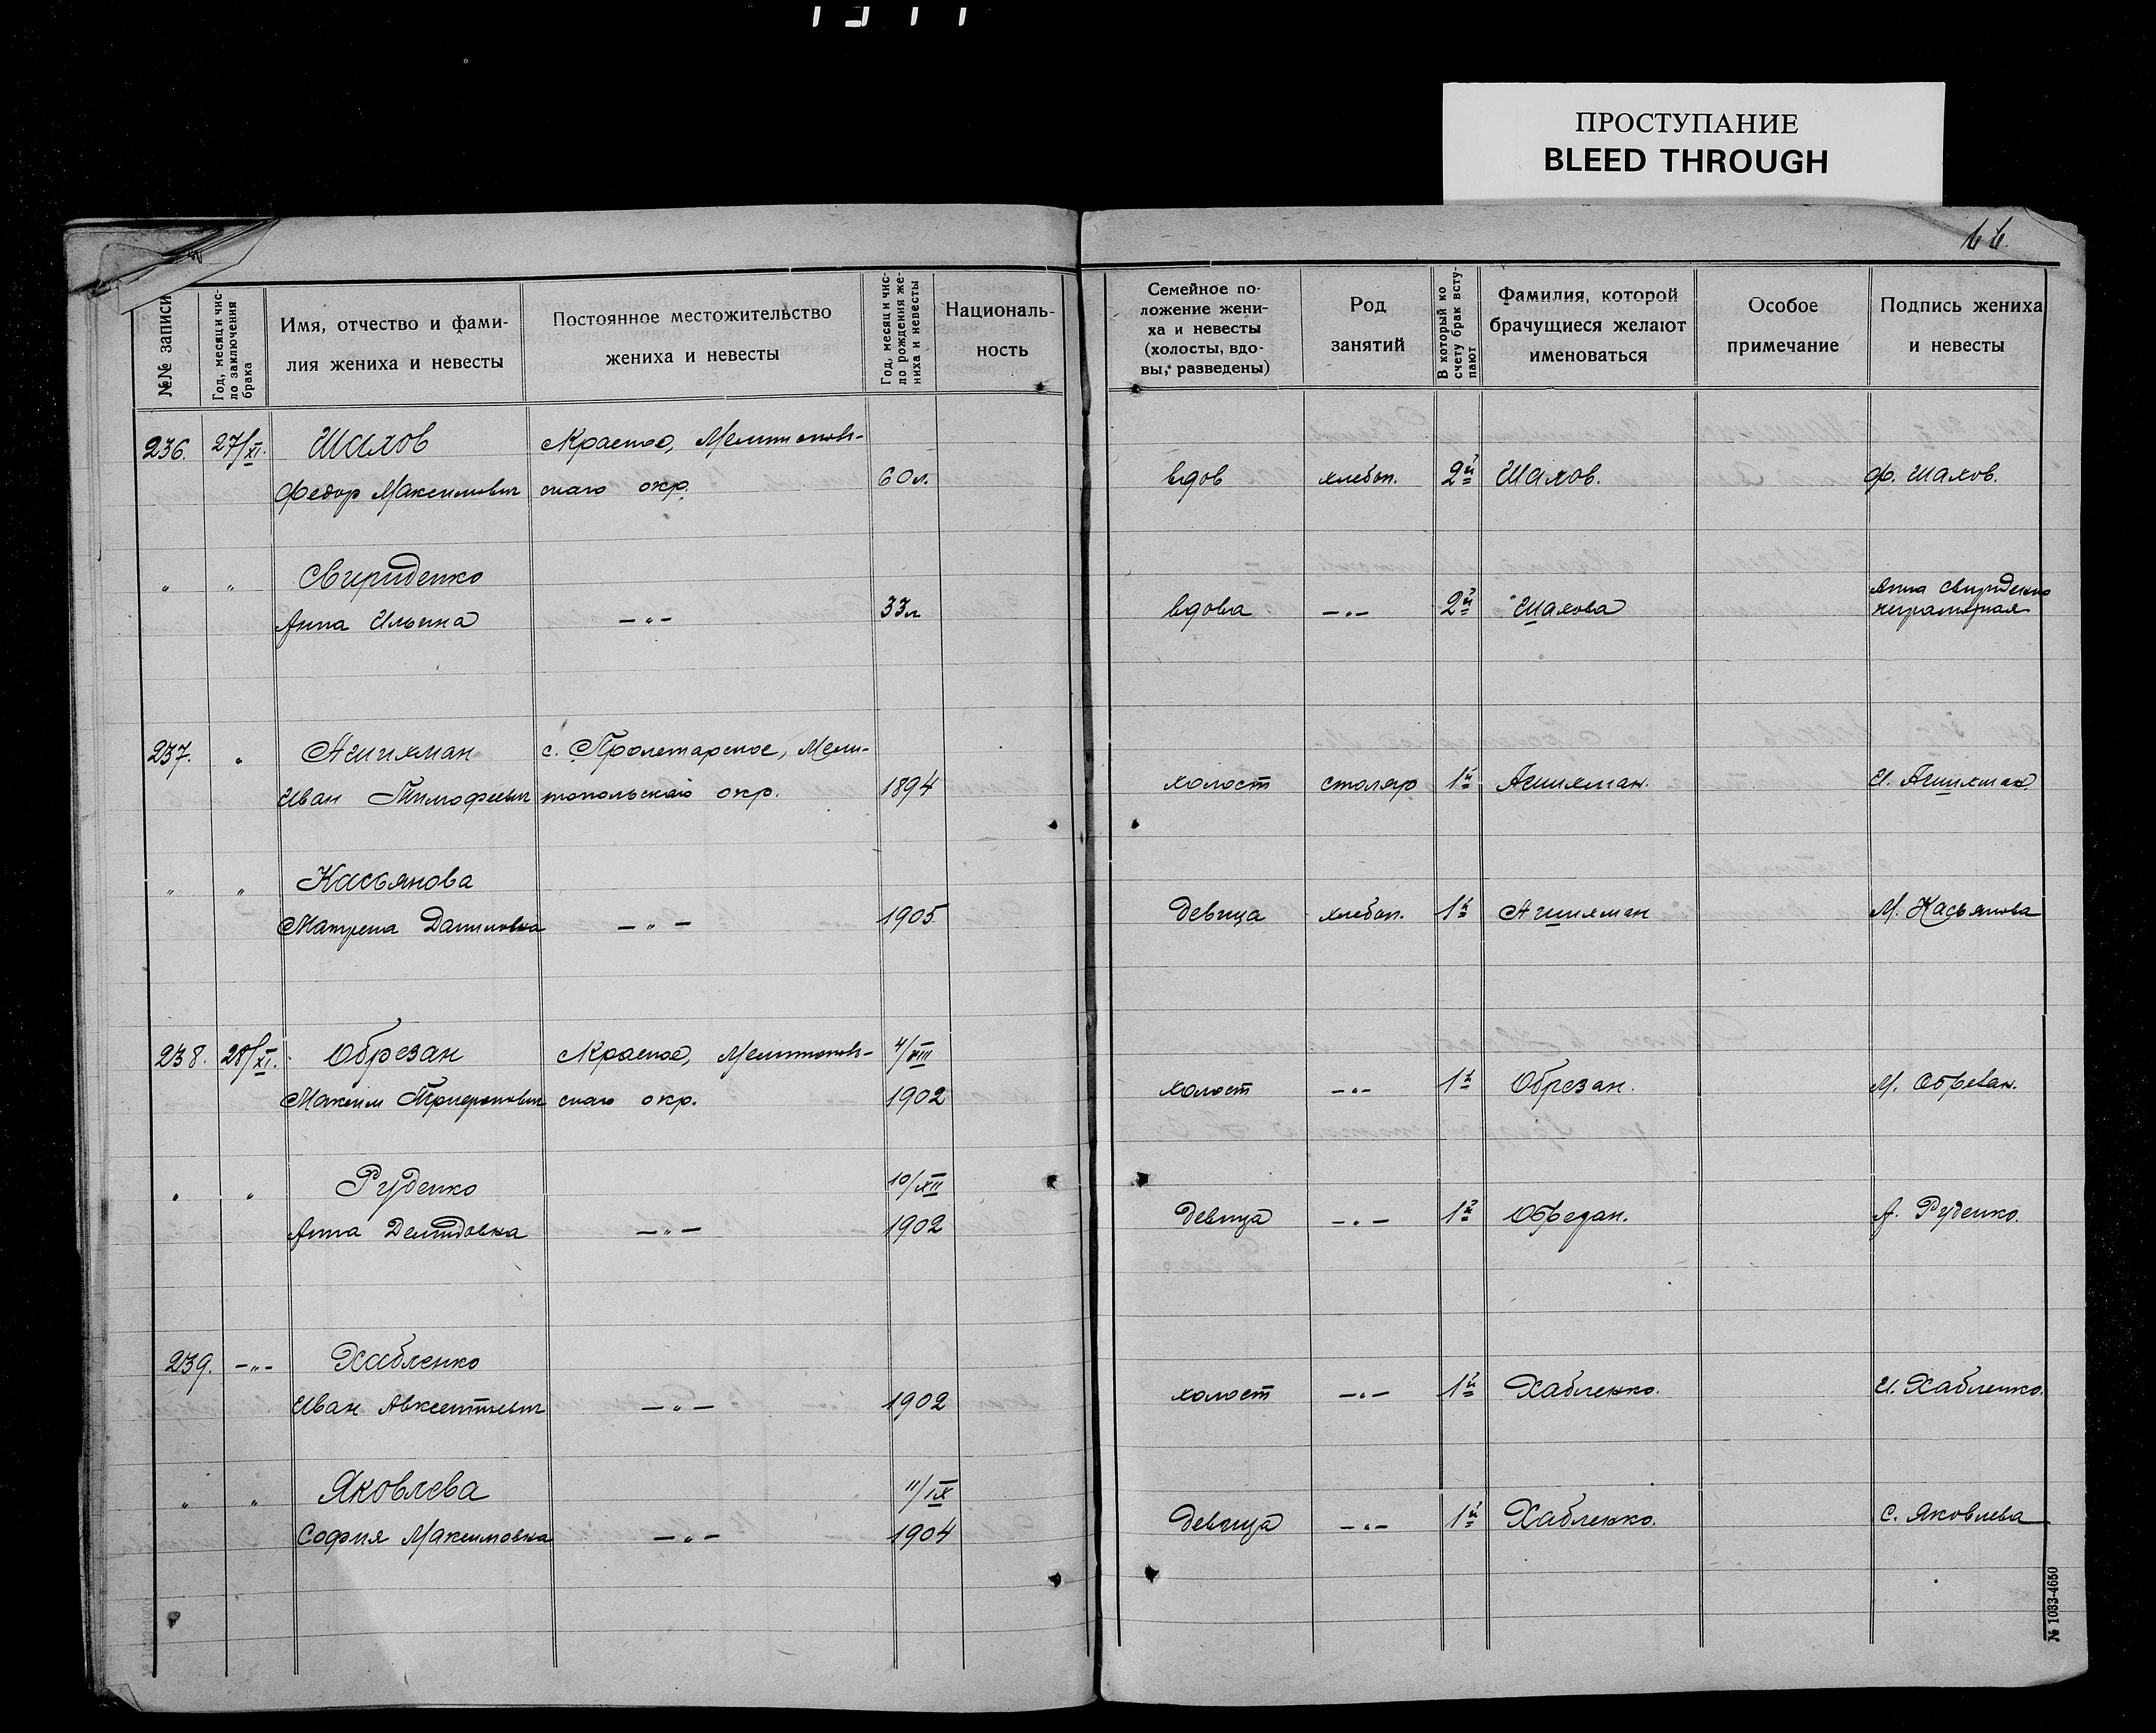 ПРОСТУПАНИЕ
BLEED THROUGH
66.
№№ записи
Год, месяц и чис-
ло заключения
брака
Имя, отчество и фами-
лия жениха и невесты
Постоянное местожительство
жениха и невесты
Год, месяц и чис-
ло рождения же-
ниха и невесты
Националь-
ность
Семейное по-
ложение жени-
ха и невесты
(холосты, вдо-
вы, разведены)
Род
занятий
В который ко
счету брак всту-
пают
Фамилия, которой
брачущиеся желают
именоваться
Особое
примечание
Подпись жениха
и невесты
236. 27/XI. Шахов Красное, Мелитополь-
Федор Максимович скаго окр. 60 л. вдов хлебоп. 2й Шахов. Ф. Шахов.
" " Свириденко
Анна Ильина —"— 33 л вдова —"— 2й Шахова Анна Свириденко
неграмотная
237. " Ашихман с. Пролетарское, Мели-
Иван Тимофеевич топольскаго окр. 1894 холост столяр 1й Ашихман. И. Ашихман
" " Касьянова
Матрена Даниловна —"— 1905 девица хлебоп. 1й Ашихман М. Касьянова
238. 28/XI. Обрезан Красное, Мелитополь- 4/VIII
Максим скаго окр. 1902 холост —"— 1й Обрезан. М. Обрезан.
" " Руденко 10/XII
Анна Демидовна —"— 1902 девица —"— 1й Обрезан. А. Руденко.
239. —"— Хабленко
Иван Авксентиевич —"— 1902 холост —"— 1й Хабленко. И. Хабленко.
" " Яковлева 11/IX
София Максимовна —"— 1904 девица —"— 1й Хабленко. С. Яковлева
№ 1033-4650